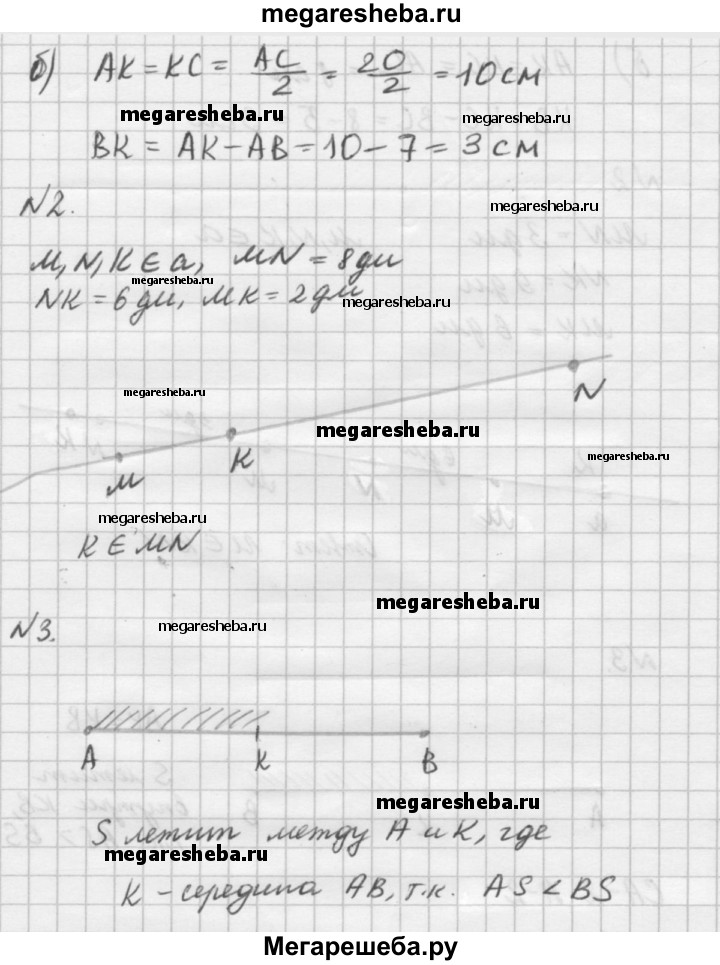 megaresheba.ru
б) AK = KC = AC/2 = 20/2 = 10 см
megaresheba.ru megaresheba.ru
BK = AK - AB = 10 - 7 = 3 см
N2.
megaresheba.ru
M, N, K ∈ a, MN = 8 дм
megaresheba.ru
NK = 6 дм, MK = 2 дм
megaresheba.ru
megaresheba.ru
N
megaresheba.ru
K
megaresheba.ru
M
megaresheba.ru
K ∈ MN
megaresheba.ru
N3.
megaresheba.ru
A K B
megaresheba.ru
S летит между A и K, где
megaresheba.ru
K - середина AB, т.к. AS < BS
Мегарешеба.ру